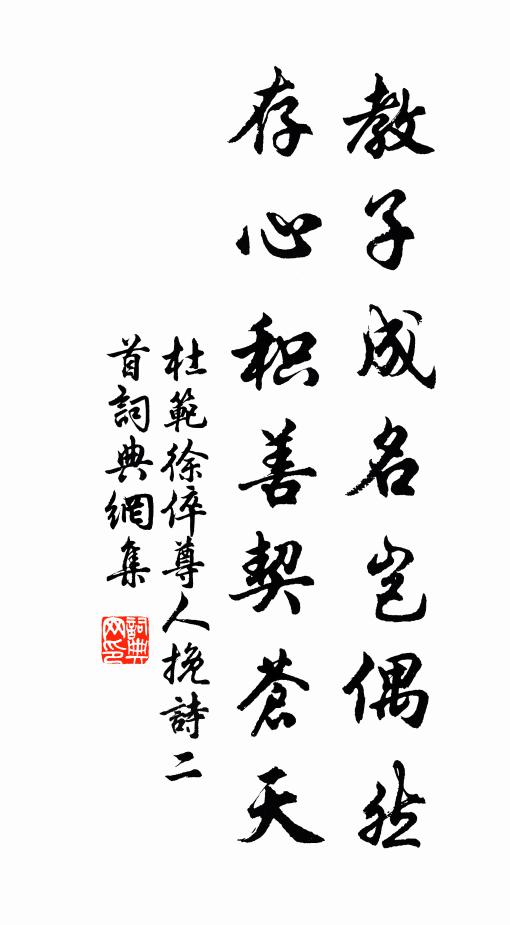 教子成名岂偶然
存心积善契蒼天
杜範徐倅尊人挽詩二
首詞典網集
詞典
网印